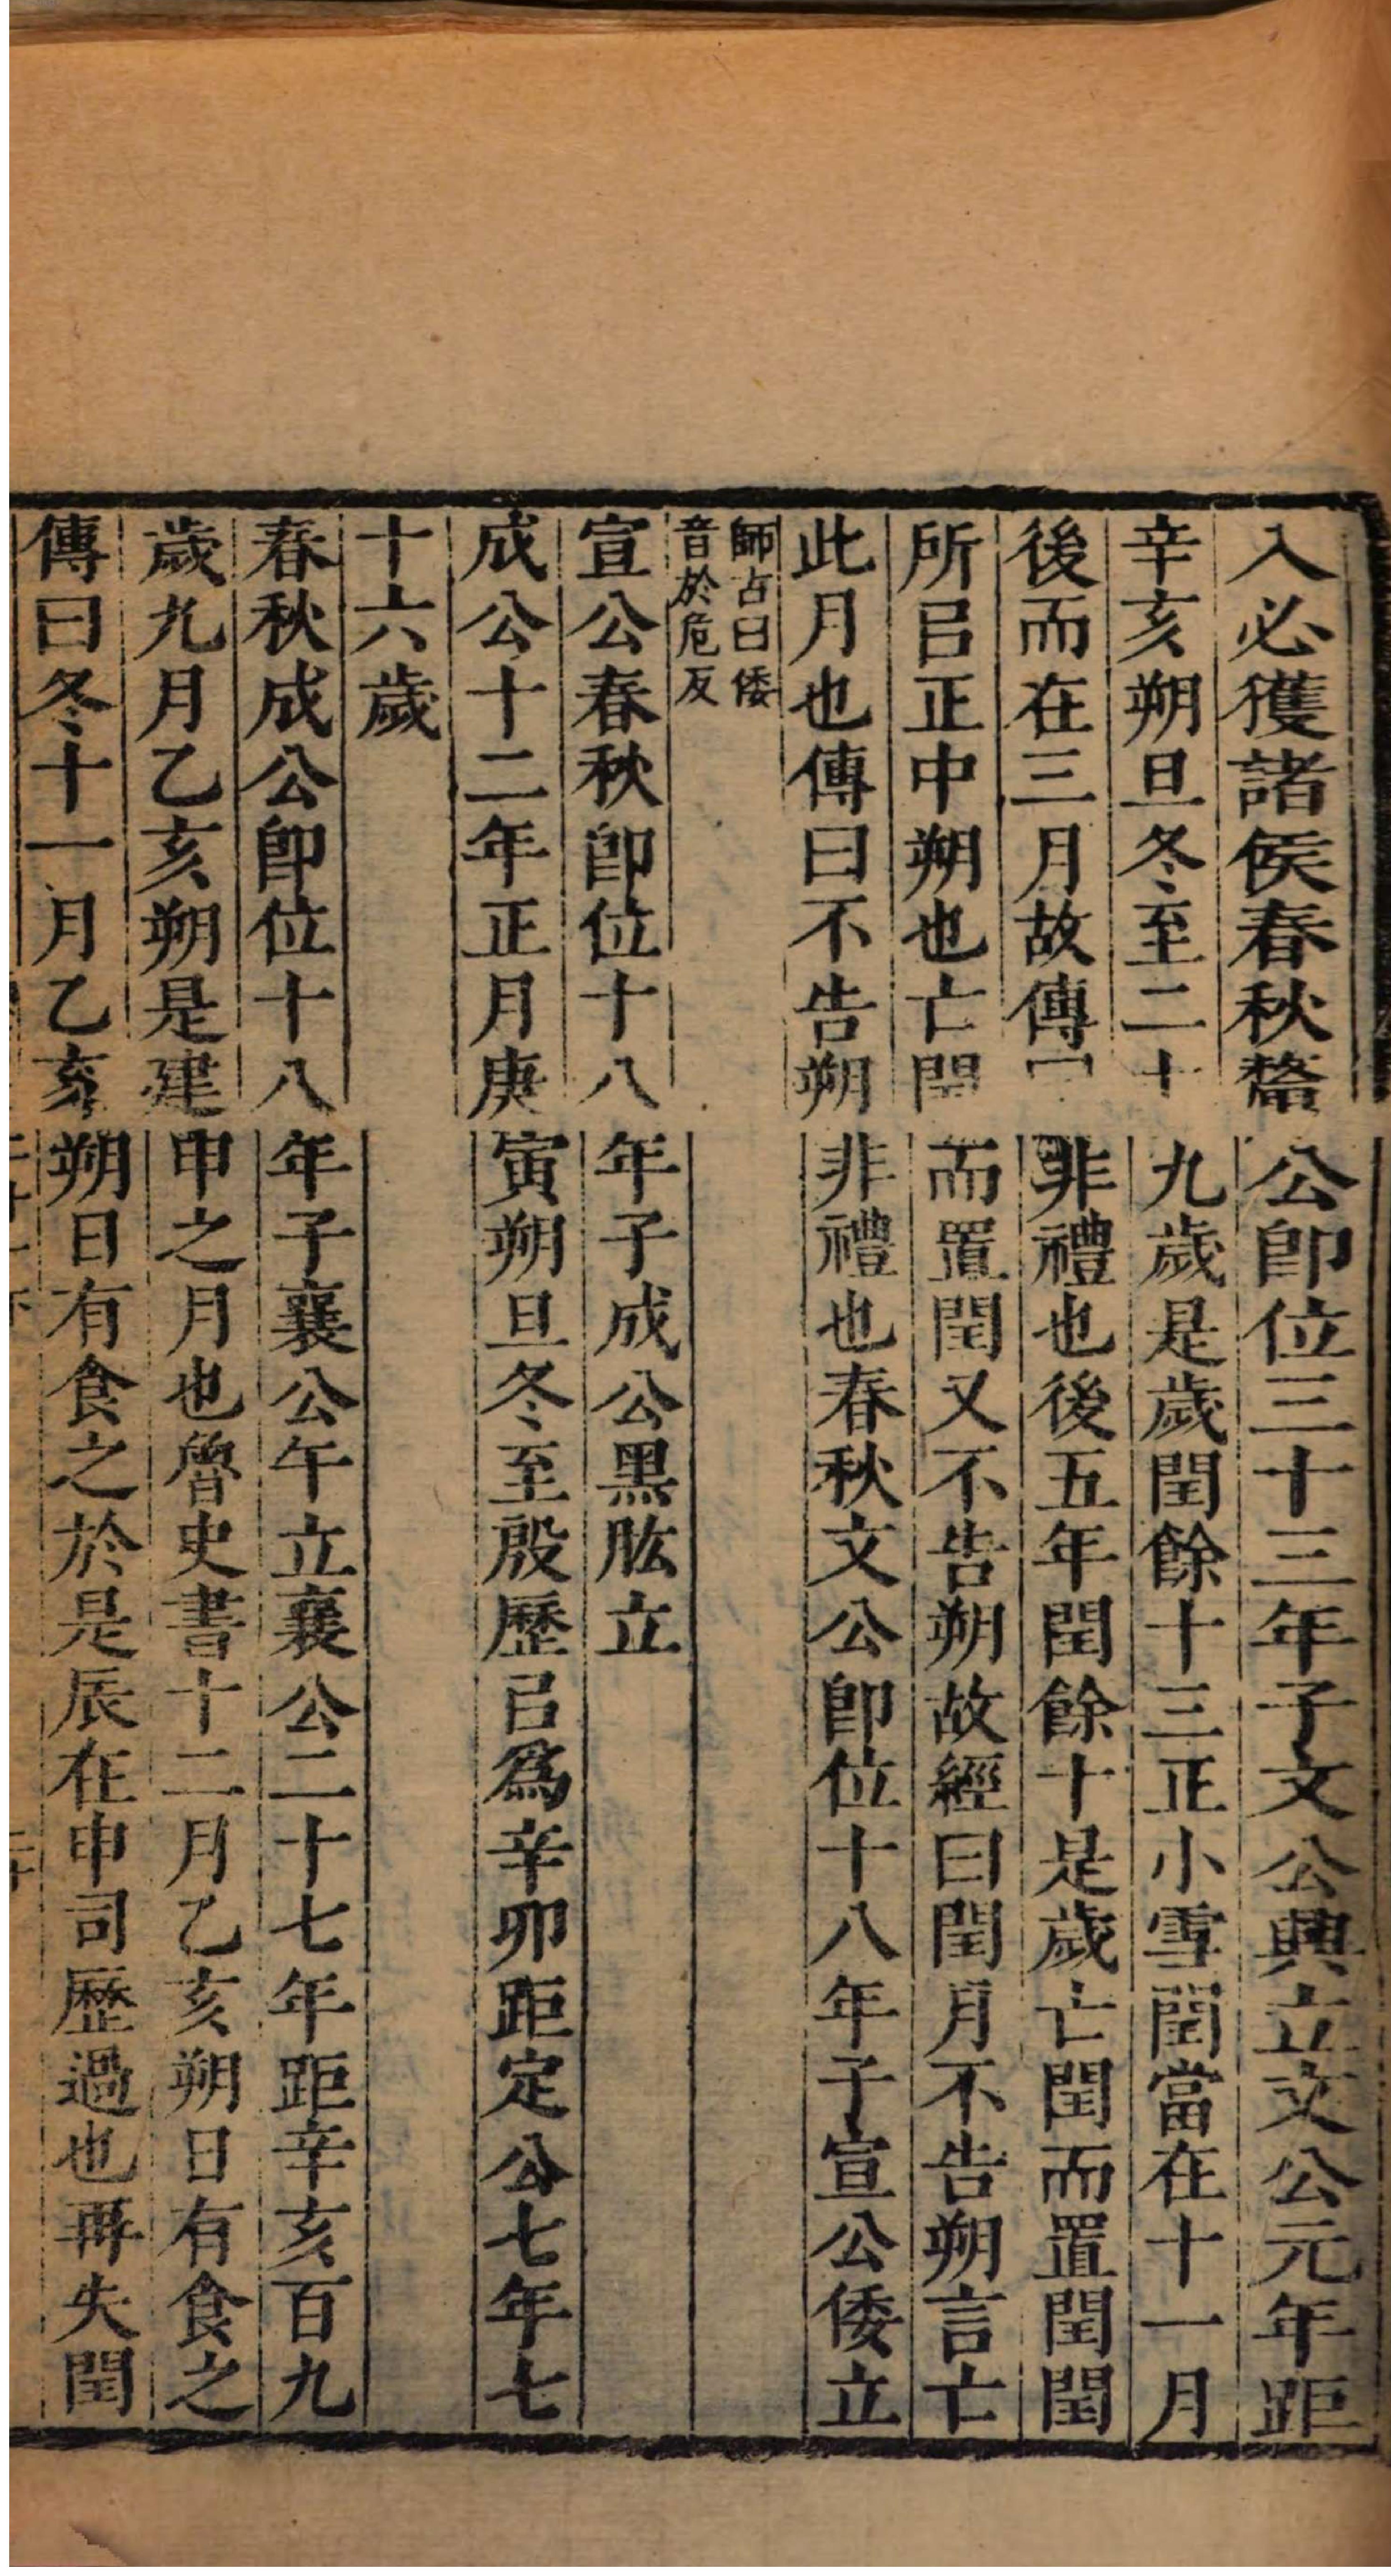 入必獲諸侯春秋釐公卽位三十三年子文公興立文公元年距
辛亥朔旦冬至二十九歲是歲閏餘十三正小雪閏當在十一月
後而在三月故傳曰非禮也後五年閏餘十是歲亡閏而置閏閏
所㠯正中朔也亡閏而置閏又不告朔故經曰閏月不告朔言亡
此月也傳曰不告朔非禮也春秋文公卽位十八年子宣公倭立
師古曰倭
音於危反
宣公春秋卽位十八年子成公黑肱立
成公十二年正月庚寅朔旦冬至殷歷㠯爲辛卯距定公七年七
十六歲
春秋成公卽位十八年子襄公午立襄公二十七年距辛亥百九
歲九月乙亥朔是建申之月也魯史書十二月乙亥朔日有食之
傳曰冬十一月乙亥朔日有食之於是辰在申司歷過也再失閏